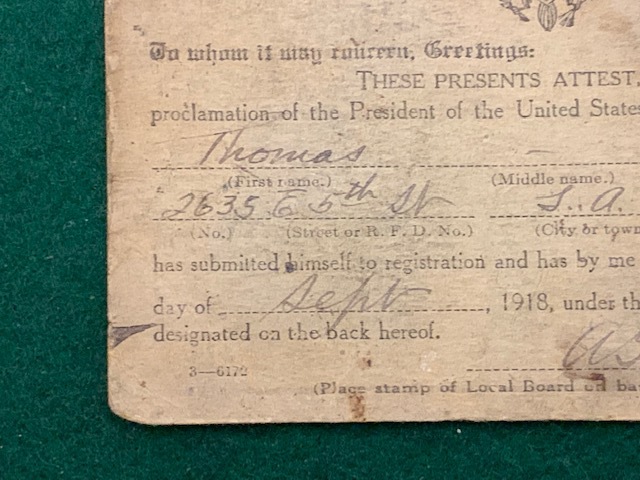 To whom it may concern, Greetings:
THESE PRESENTS ATTEST
proclamation of the President of the United States
Thomas -
(First name.) (Middle name.)
2635 E 5th St L. A.
(No.) (Street or R. F. D. No.) (City or town
has submitted himself to registration and has by me
day of Sept, 1918, under th
designated on the back hereof.
3—6172
(Place stamp of Local Board on ba